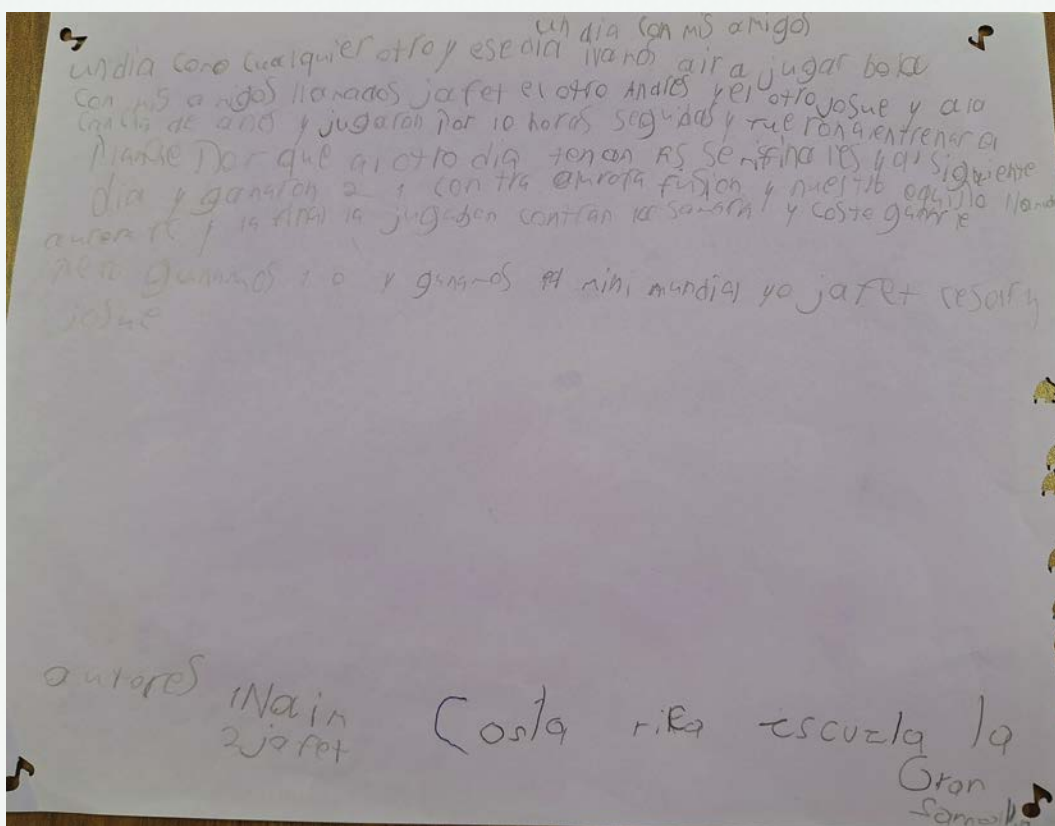 un dia con mis amigos
un dia como cualquier otro y ese dia ivamos air a jugar bola
con mis amigos llamados jafet el otro Andres y el otro josue y ala
cancha de y jugaron por 10 horas seguidas y fueron a entrenar a
porque al otro dia semifinales y al siguiente
dia y ganaron 2 1 contra europa fusion y nuestro equipo
aurora fc y la final la jugaban contran y costo ganarle
pero ganamos 1 0 y ganamos el mini mundial yo jafet cesar y
josue
autores 1 Nain
2 jafet
Costa rika escuela la
Gran